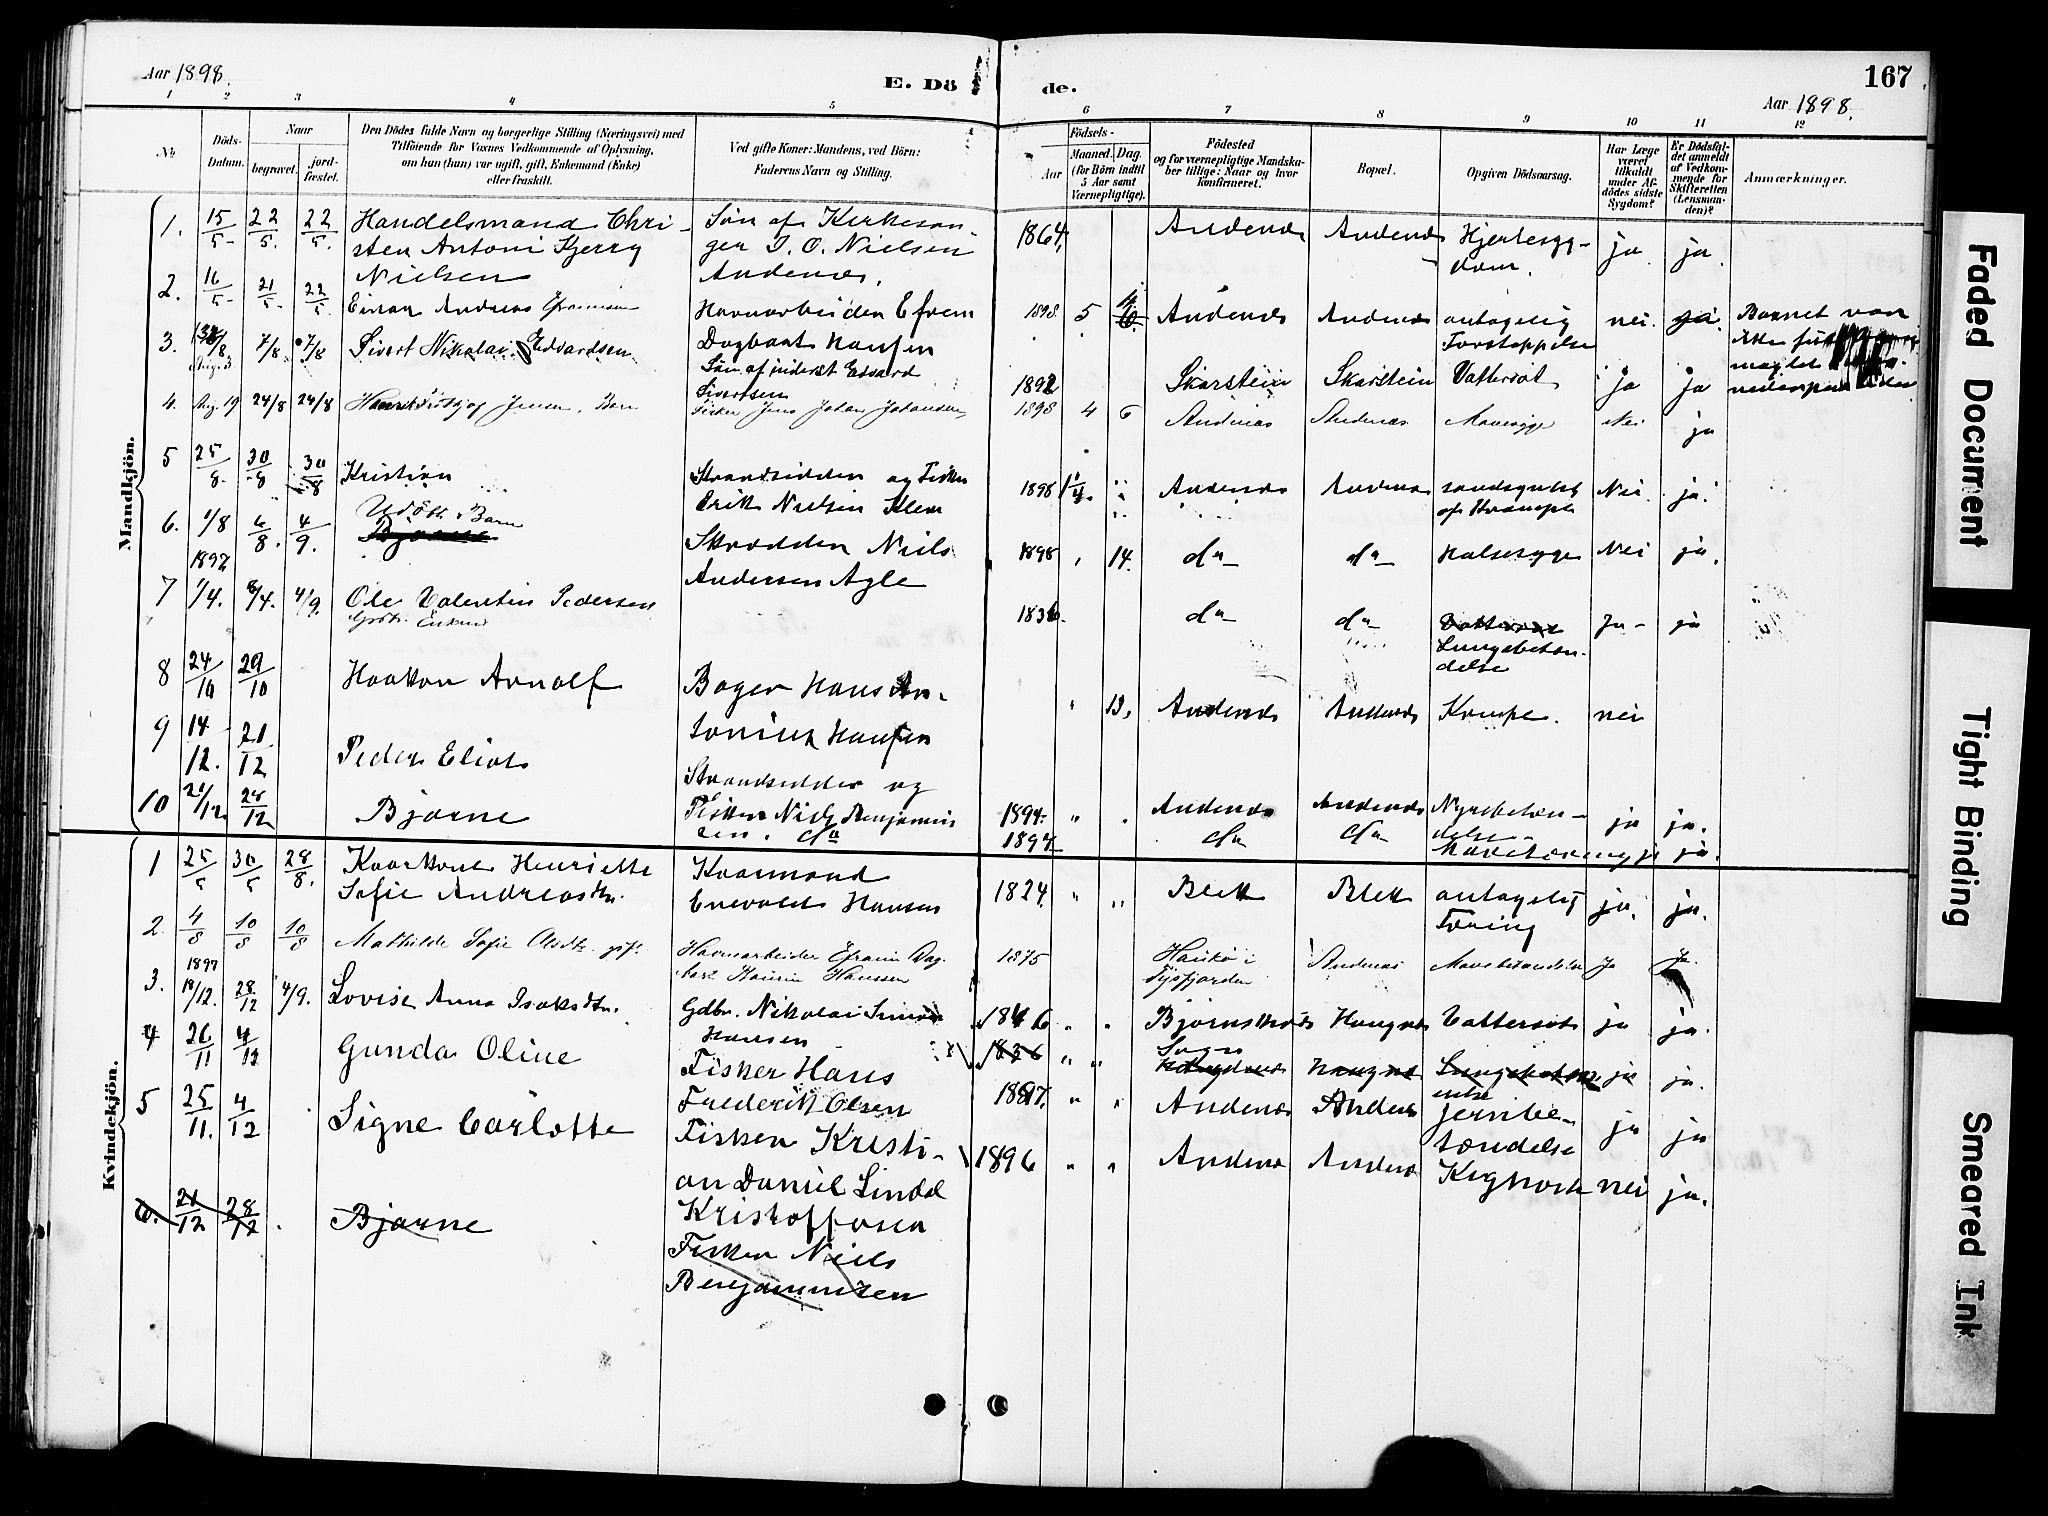 Aar 1898.
E. Dö
de.
167
Aar 1898.
1 2 3 4 5 6 7 8 9 10 11 12
No.
Döds-Datum.
Naar
begravet.
jord-fæstet.
Den Dödes fulde Navn og borgerlige Stilling (Næringsvei) med
Tilföiende for Voxnes Vedkommende af Oplysning,
om han (hun) var ugift, gift, Enkemand (Enke)
eller fraskilt.
Ved gifte Koner: Mandens, ved Börn:
Faderens Navn og Stilling.
Födsels-
Aar
Maaned. Dag.
(for Börn indtil
5 Aar samt
Værnepligtige).
Födested
og for værnepligtige Mandska-
ber tillige: Naar og hvor
konfirmeret.
Bopæl.
Opgiven Dödsaarsag.
Har Læge
været
tilkaldt
under Af-
dödes sidste
Sygdom?
Er Dödsfal-
det anmeldt
af Vedkom-
mende for
Skifteretten
(Lensman-
den)?
Anmærkninger.
Mandkjön.
1. 15/5 22/5 22/5 Handelsmand Chri-
sten Antoni Bjerry
Nielsen
Søn af Kirkesan-
ger J. O. Nielsen
Andenæs.
1864. Andenæs Andenæs Hjertesyg-
dom. ja ja.
2. 16/5 21/5 22/5 Einar Andreas Efraimsen
Havnarbeider Efrem
Dagbart Hansen
1898 5 Andenæs Andenæs antagelig
Forstoppelse nei. ja. Barnet var
3. 7/8 7/8 Sivert Nikolai Edvardsen
Søn af inderst Edvard
Sivertsen
1892 Skarstein Skarstein Vattersot ja ja
4. Aug. 19 24/8 24/8 Jensen. Barn
Fisker Jens Johan Johansen
1898 4 6 Andenæs Andenæs Mavesyge Nei ja
5 25/8 30/8 30/8 Kristian
Strandsidder og Fisker
Erik Nielsen Klev
1898 Andenæs Andenæs
af Krampe Nei. ja.
6. 1/8 6/8. 4/9. Udøbt Barn
Bjarne
Skrædder Niels
Andersen Agle
1898 14. do do Halsesyge Nei ja.
1897
7 1/4. 8/4. 4/9. Ole Valentin Pedersen
Gdbr. Enkem.
1836. do do Vattersot
Lungebetæn-
delse Ja ja
8 24/10 29/10 Haakon Arnolf
Bager Hans An-
tonius Hansen
13. Andenæs Andenæs Krampe. nei
9 14/12. 21/12 Peder Eliot
Strandsidder og
Fisker Niels Benjamin
sen.
1894. Andenæs Andenæs Nyrebetæn-
delse ja ja.
10 21/12. 28/12 Bjarne
do
1897 do do ja.
Kvindekjön.
1 25/5 30/5 28/8. Kaarkone Henriette
Sofie Andreasdtr.
Kaarmand
Enevold Hansen
1824. Bleik Bleik antagelig
Tæring ja. ja.
2 4/8 10/8 10/8 Mathilde Sofie Olsdtr. gift.
Havnarbeider Efraim Dag-
bart Hansen
1875 i
Tysfjorden Andenæs Mavebetændelse Ja Ja.
1897
3. 18/12. 28/12 4/9. Lovise Anna Isaksdtr.
Gdbr. Nikolai Simon
Hansen
1846 Bjørnskinds
Sogn Haugnes Vattersot ja ja.
4 26/11 4/12 Gunda Oline
Fisker Hans
Frederik Olsen
1897. Andenæs Andenæs Jernbe-
tændelse ja ja
5 25/11. 4/12 Signe Carlotte
Fisker Kristi-
an Daniel Lindal
Kristoffersen
1896 Andenæs Andenæs Kighoste nei ja.
6. 21/12 28/12 Bjarne
Fisker Niels
Benjaminsen
Faded Document
Tight Binding
Smeared Ink